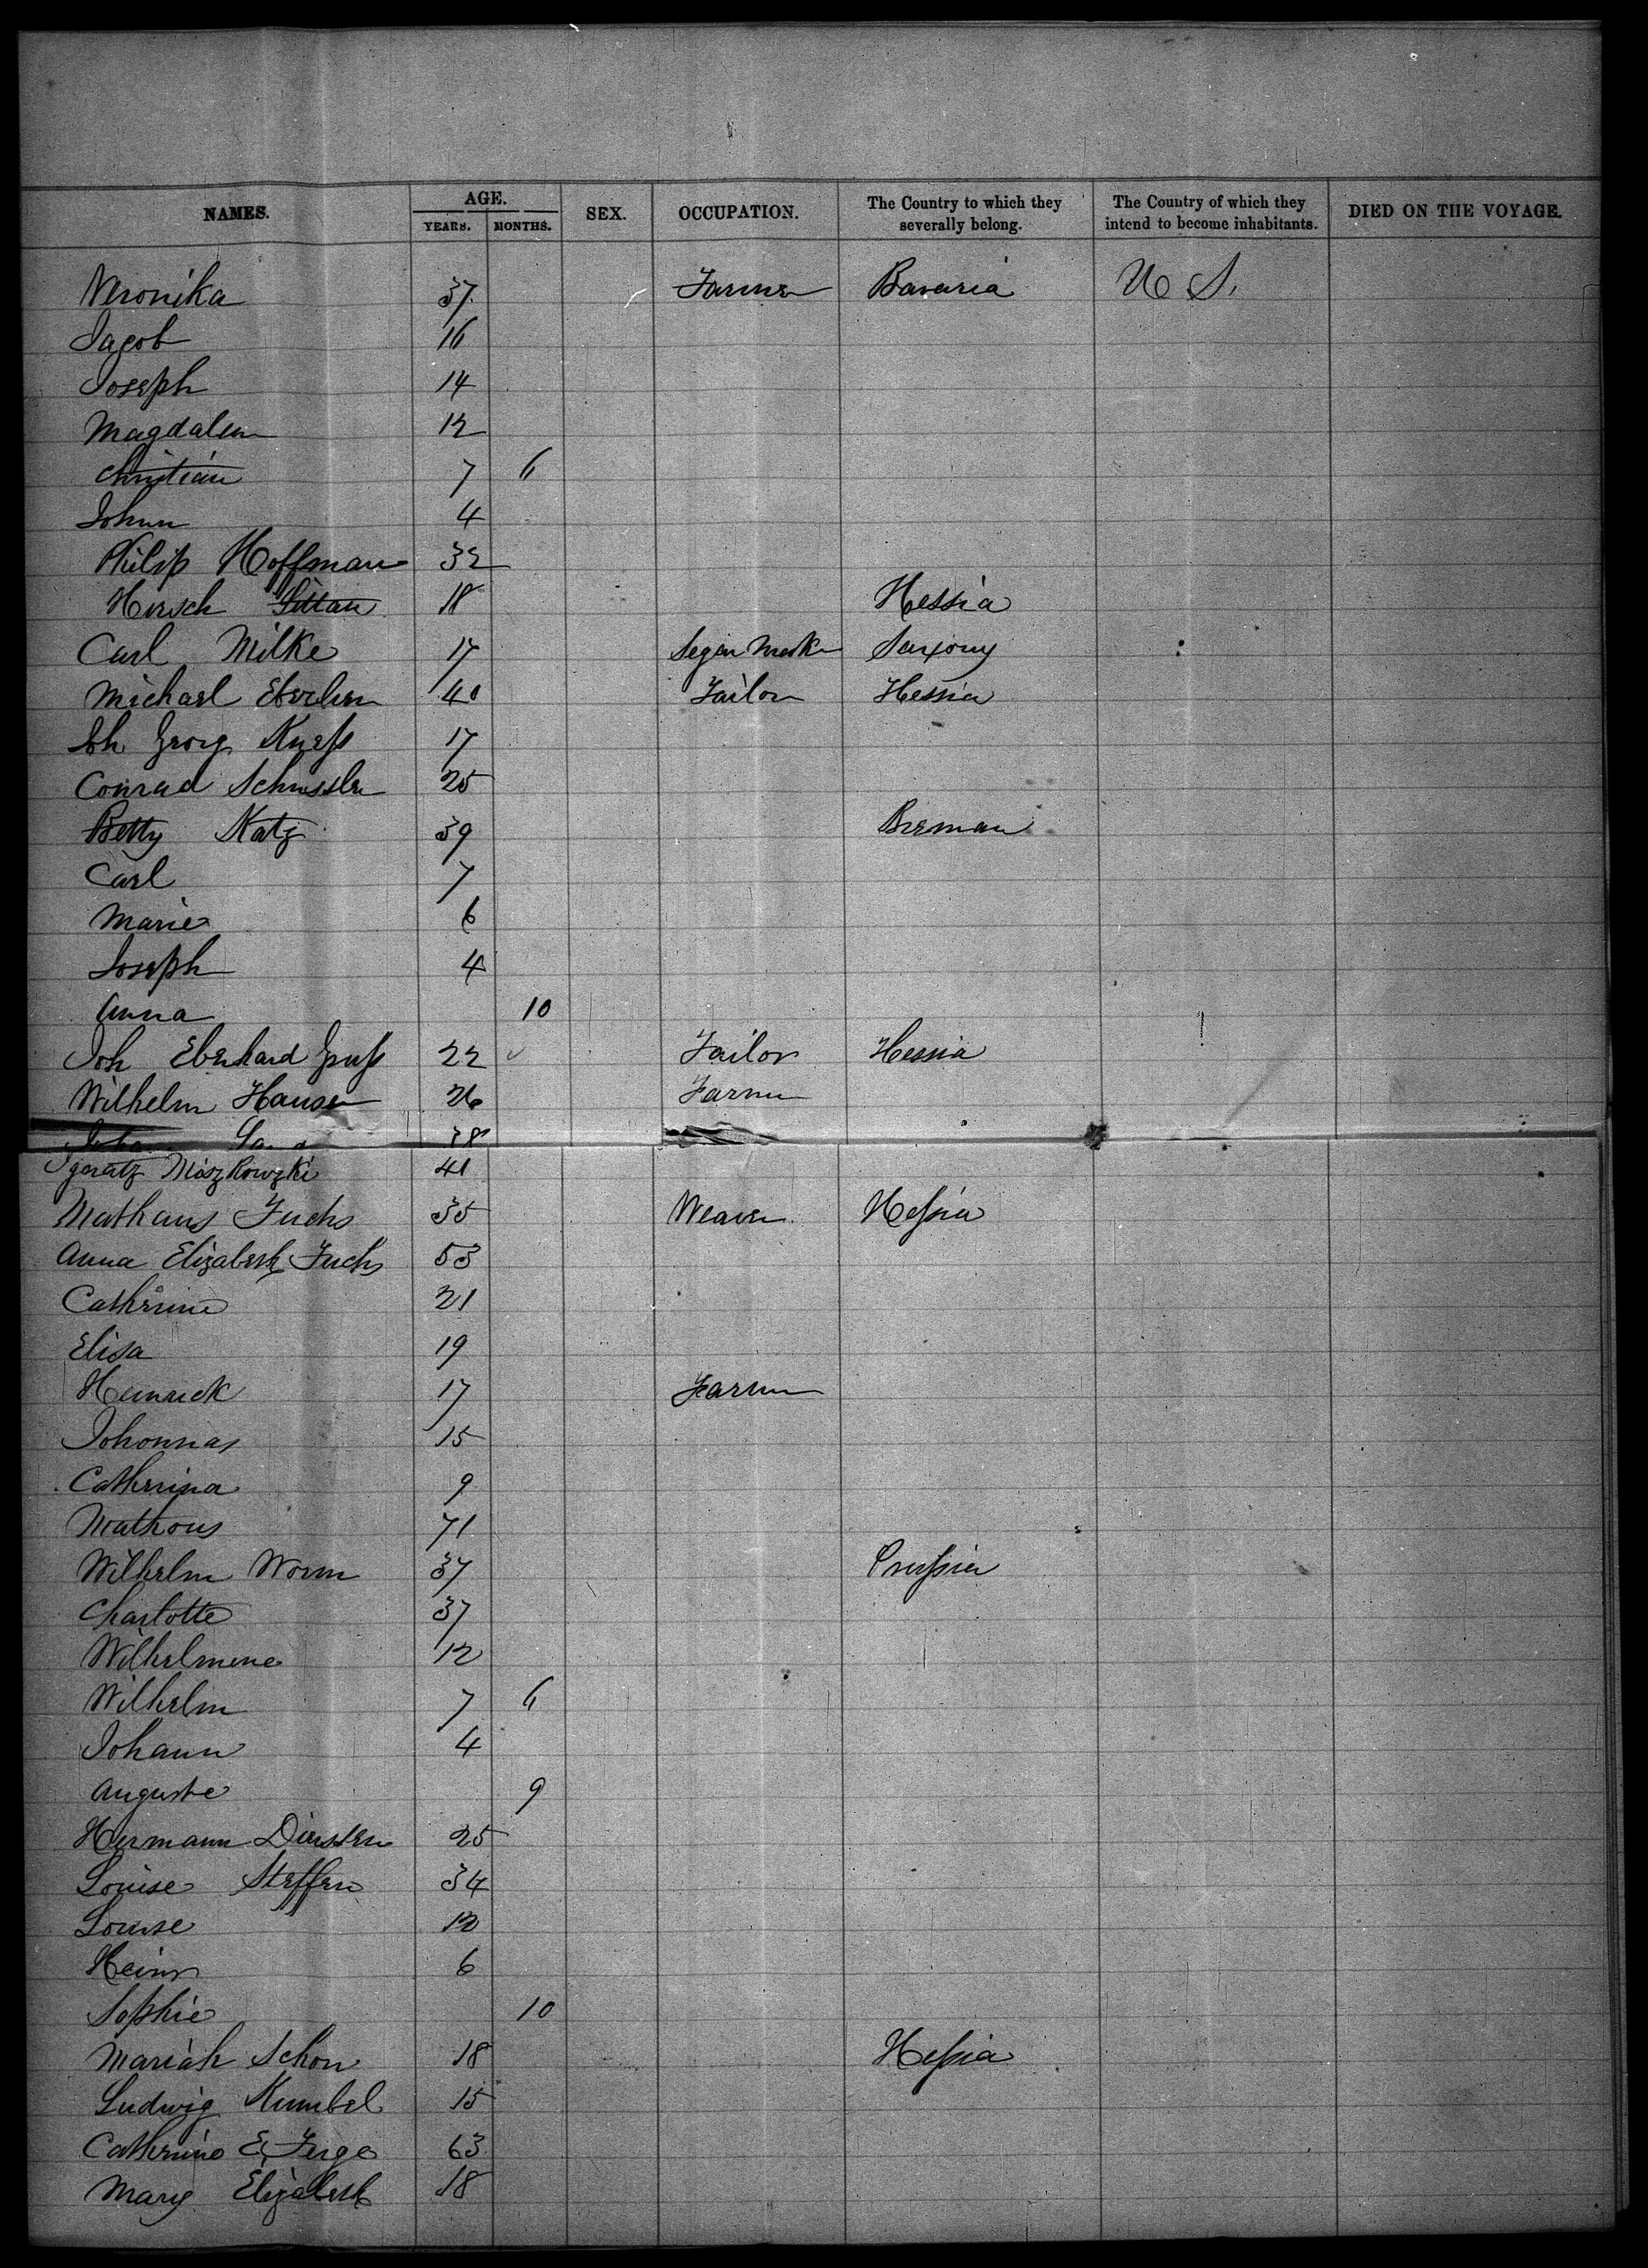 NAMES. AGE. SEX. OCCUPATION. The Country to which they severally belong. The Country of which they intend to become inhabitants. DIED ON THE VOYAGE.
YEARS. MONTHS.
Veronika 37 Farmer Bavaria U S.
Jacob 16
Joseph 14
Magdalena 12
Christian 7 6
Johnn 4
Philip Hoffman 32
Hersch 18 Hessia
Carl Milke 17 Segar Saxony
Michael 40 Tailor Hessia
Joh Georg 17
Conrad Schussler 25
Betty Katz 39 Bremen
Carl 7
Marie 6
Joseph 4
Anna 10
Joh Eberhard 22 Tailor Hessia
Wilhelm Hauser 26 Farmer
38
Miszkowzki 41
Mathaus Fuchs 35 Weaver Heſsia
Anna Elizabeth Fuchs 53
Catherine 21
Elisa 19
Heinrick 17 Farmer
Johonnas 15
Catherina 9
Mathous 71
Wilhelm Worm 37 Pruſsia
Charlotte 37
Wilhelmine 12
Wilhelm 7 6
Johann 4
Auguste 9
Hermann Dierssen 25
Louise Steffen 34
Louise 12
Heinr 6
Sophie 10
Mariah Schon 18 Heſsia
Ludwig Kumbel 15
Catherine E. Ferge 63
Mary Elizabeth 18